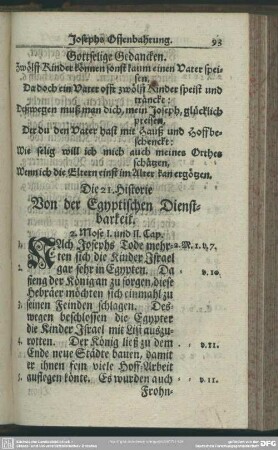 Josephs Offenbahrung. 93
Gottselige Gedancken.
Zwölff Kinder können sonst kaum einen Vater spei-
sen,
Da doch ein Vater offt zwölff Kinder speist und
träncke:
Deßwegen muß man dich, mein Joseph, glücklich
preisen,
Der du den Vater hast mit Hauß und Hoff be-
schenckt:
Wie selig will ich mich auch meines Orthes
schätzen,
Wenn ich die Eltern einst im Alter kan ergötzen.
Die 21. Historie
Von der Egyptischen Dienst-
barkeit.
2. Mose I. und II. Cap.
1. Nach Josephs Tode mehr- 2. M. 1. v. 7.
ten sich die Kinder Israel
2. gar sehr in Egypten. Da v. 10.
fieng der König an zu sorgen diese
Hebräer möchten sich einmahl zu
3. seinen Feinden schlagen. Des-
wegen beschlossen die Egypter
die Kinder Israel mit List auszu-
4. rotten. Der König ließ zu dem v. 11.
Ende neue Städte bauen, damit
er ihnen fein viele Hoff-Arbeit
5. auflegen könte. Es wurden auch v. 11.
Frohn-